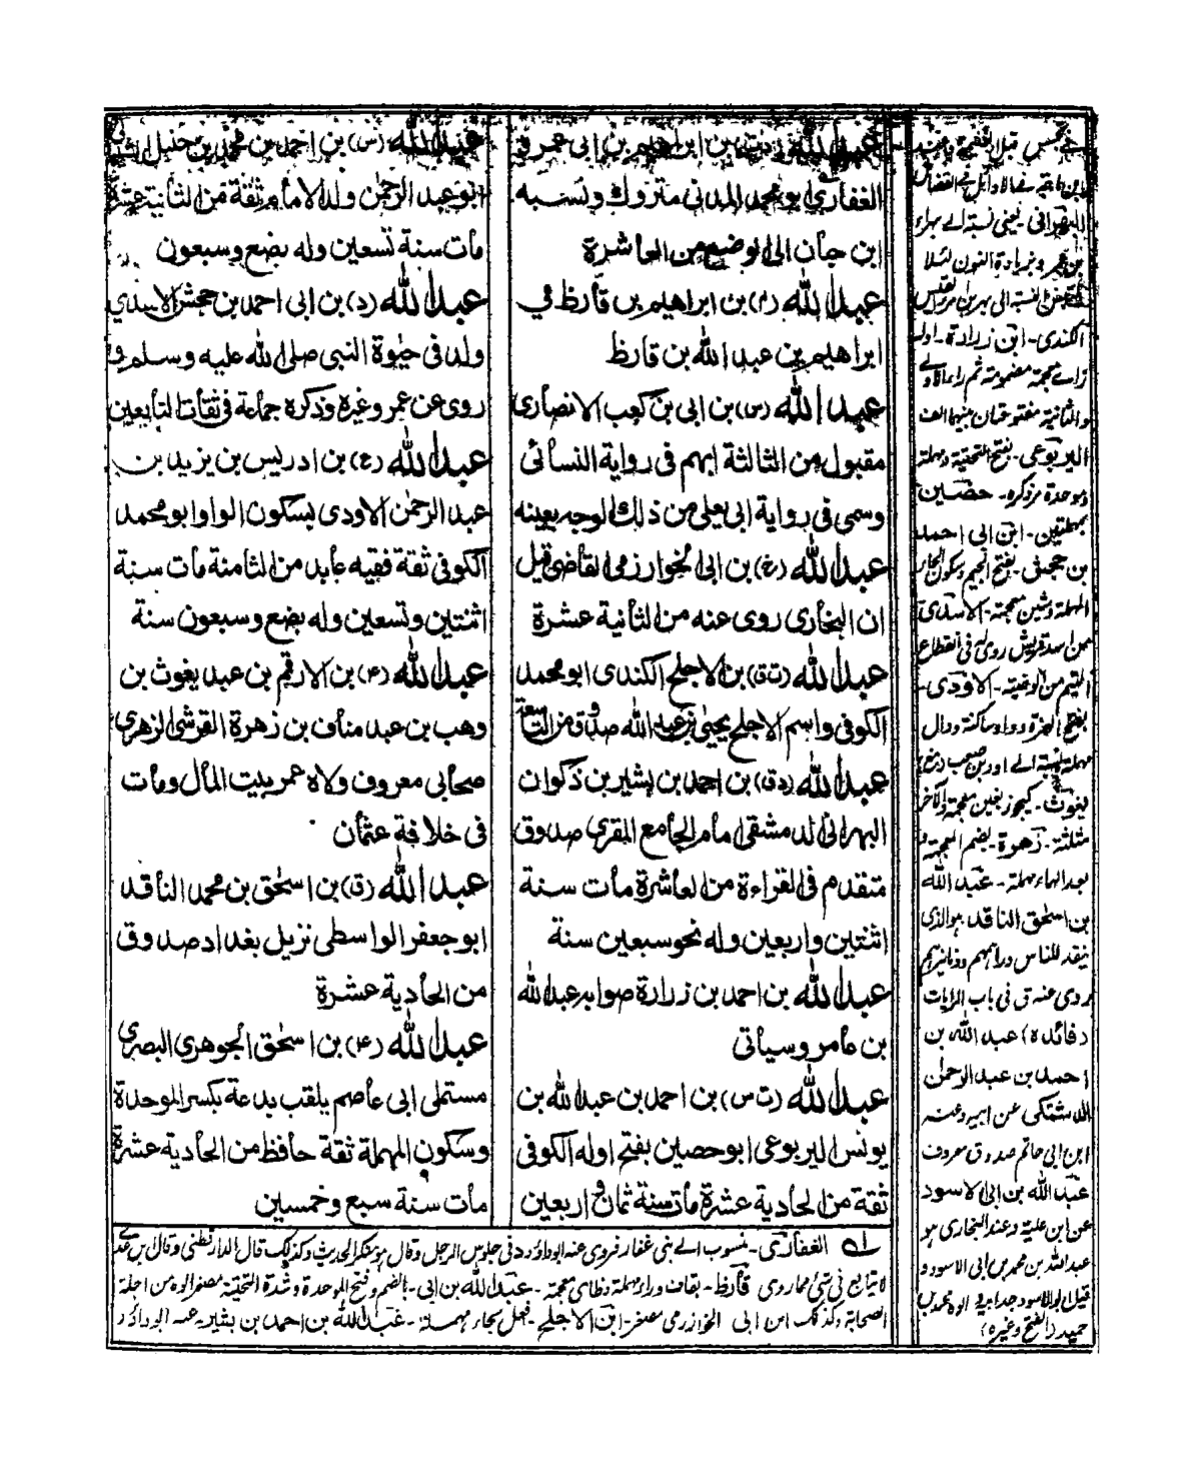 عبد الله (دت) بن ابراهيم بن ابى عمرو
الغفارى ابو محمد المدنى متروك ونسبه
ابن حبان الى الوضع من العاشرة
عبد الله (م) بن ابراهيم بن قارظ فى
ابراهيم بن عبد الله بن قارظ
عبد الله (س) بن ابى بن كعب الانصارى
مقبول من الثالثة ابهم فى رواية النسائى
وسمى فى رواية ابى يعلى من ذلك الوجه بعينه
عبد الله (خ) بن ابى الخوارزمى القاضى قيل
ان البخارى روى عنه من الثانية عشرة
عبد الله (ت ق) بن الاجلح الكندى ابو محمد
الكوفى واسم الاجلح يحيى بن عبد الله صدوق من التاسعة
عبد الله (د ق) بن احمد بن بشير بن ذكوان
البهرانى الدمشقى امام الجامع المقرى صدوق
متقدم فى القراءة من العاشرة مات سنة
اثنتين واربعين وله نحو سبعين سنة
عبد الله بن احمد بن زرارة صوابه عبد الله
بن عامر وسيأتى
عبد الله (ت س) بن احمد بن عبد الله بن
يونس اليربوعى ابو حصين بفتح اوله الكوفى
ثقة من الحادية عشرة مات سنة ثمان واربعين
عبد الله (س) بن احمد بن محمد بن حنبل الشيبانى
ابو عبد الرحمٰن ولد الامام ثقة من الثانية عشرة
مات سنة تسعين وله بضع وسبعون
عبد الله (د) بن ابى احمد بن جحش الاسدي
ولد فى حيٰوة النبى صلى الله عليه وسلم و
روى عن عمر وغيره وذكره جماعة فى ثقات التابعين
عبد الله (ع) بن ادريس بن يزيد بن
عبد الرحمٰن الاودى بسكون الواو ابو محمد
الكوفى ثقة فقيه عابد من الثامنة مات سنة
اثنتين وتسعين وله بضع وسبعون سنة
عبد الله (ع) بن الارقم بن عبد يغوث بن
وهب بن عبد مناف بن زهرة القرشى الزهرى
صحابى معروف ولاه عمر بيت المال ومات
فى خلافة عثمان
عبد الله (ق) بن اسحٰق بن محمد الناقد
ابو جعفر الواسطى نزيل بغداد صدوق
من الحادية عشرة
عبد الله (ع) بن اسحٰق الجوهرى البصرى
مستملى ابى عاصم يلقب بدعة بكسر الموحدة
وسكون المهملة ثقة حافظ من الحادية عشرة
مات سنة سبع وخمسين
البهرانى - يعنى نسبة الے بهراء
الكندى - ابن زرارة - اوله
زاے معجمة مضمومة ثم راءان الاولے
والثانية مفتوحتان بينهما الف
اليربوعى - بفتح التحتية ومهملة
وموحدة مر ذكره - حضين
بمهملتين - ابن ابى احمد
بن جحش - بفتح الجيم وسكون الحاء
المهملة وشين معجمة - الاسدى
من اسد قريش
الاودى -
بفتح الهمزة وواو ساكنة ودال
مهملة نسبة الے اود بن صعب
يغوث - بغين معجمة والآخر
مثلثة - زهرة - بضم المعجمة و
بعد الهاء مهملة - عبد الله
بن اسحٰق الناقد هو الذى
ينقد للناس دراهمهم ودنانيرهم
روى عنه ق فى باب الرايات
(فائدة) عبد الله بن
احمد بن عبد الرحمٰن
الدشتكى عن ابيه وعنه
ابن ابى حاتم صدوق معروف
عبد الله بن ابى الاسود
عن ابن علية وعند البخارى هو
عبد الله بن محمد بن ابى الاسود و
قيل ابو الاسود جد ابيه وابوه محمد بن
حميد (الفتح وغيره)
الغفارى - منسوب الے بنى غفار فروى عنه ابو داؤد فى جلوس الرجل وقال منكر الحديث وكذلك قال الدارقطنى وقال بن عدے
لا يتابع فى شئ مما روى قارظ - بقاف وراء مهملة وظاى معجمة - عبد الله بن ابى - بالضم وفتح الموحدة وشدة التحتية مصغرا ابوه من اجلة
الصحابة وكذلك ابن ابى الخوارزمى مصغر - ابن الاجلح - فجيم بحاء مهملة - عبد الله بن احمد بن بشير عنه ابو داؤد